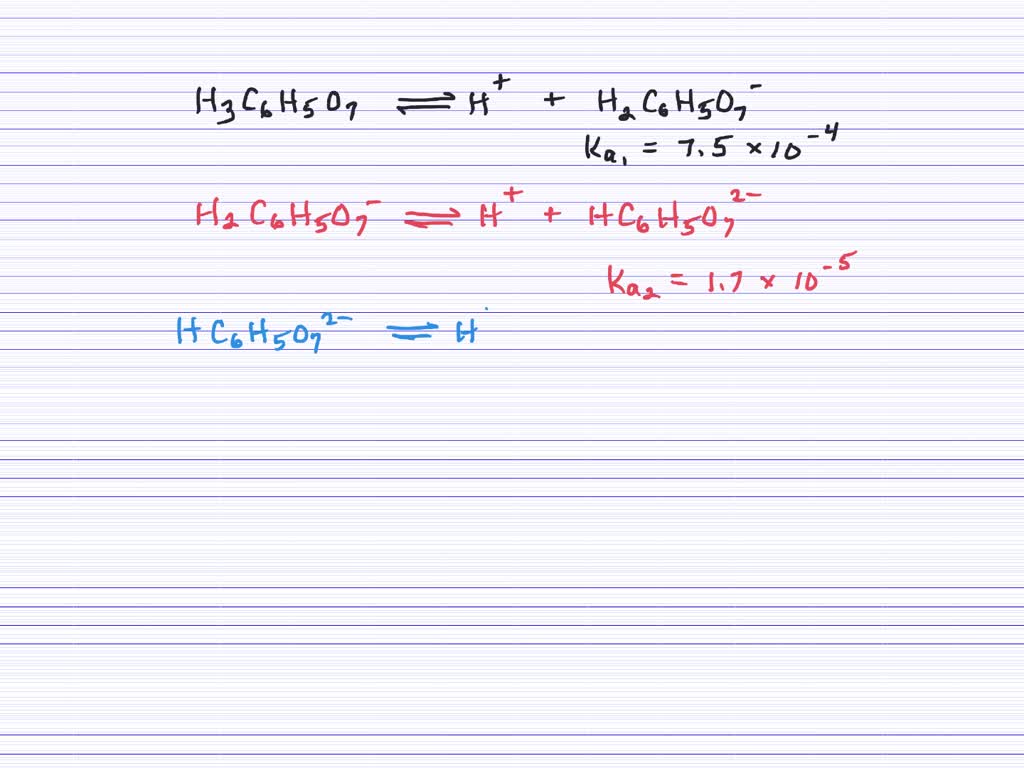 H₃C₆H₅O₇ ⇌ H⁺ + H₂C₆H₅O₇⁻
Ka₁ = 7.5 × 10⁻⁴
H₂C₆H₅O₇⁻ ⇌ H⁺ + HC₆H₅O₇²⁻
Ka₂ = 1.7 × 10⁻⁵
HC₆H₅O₇²⁻ ⇌ H